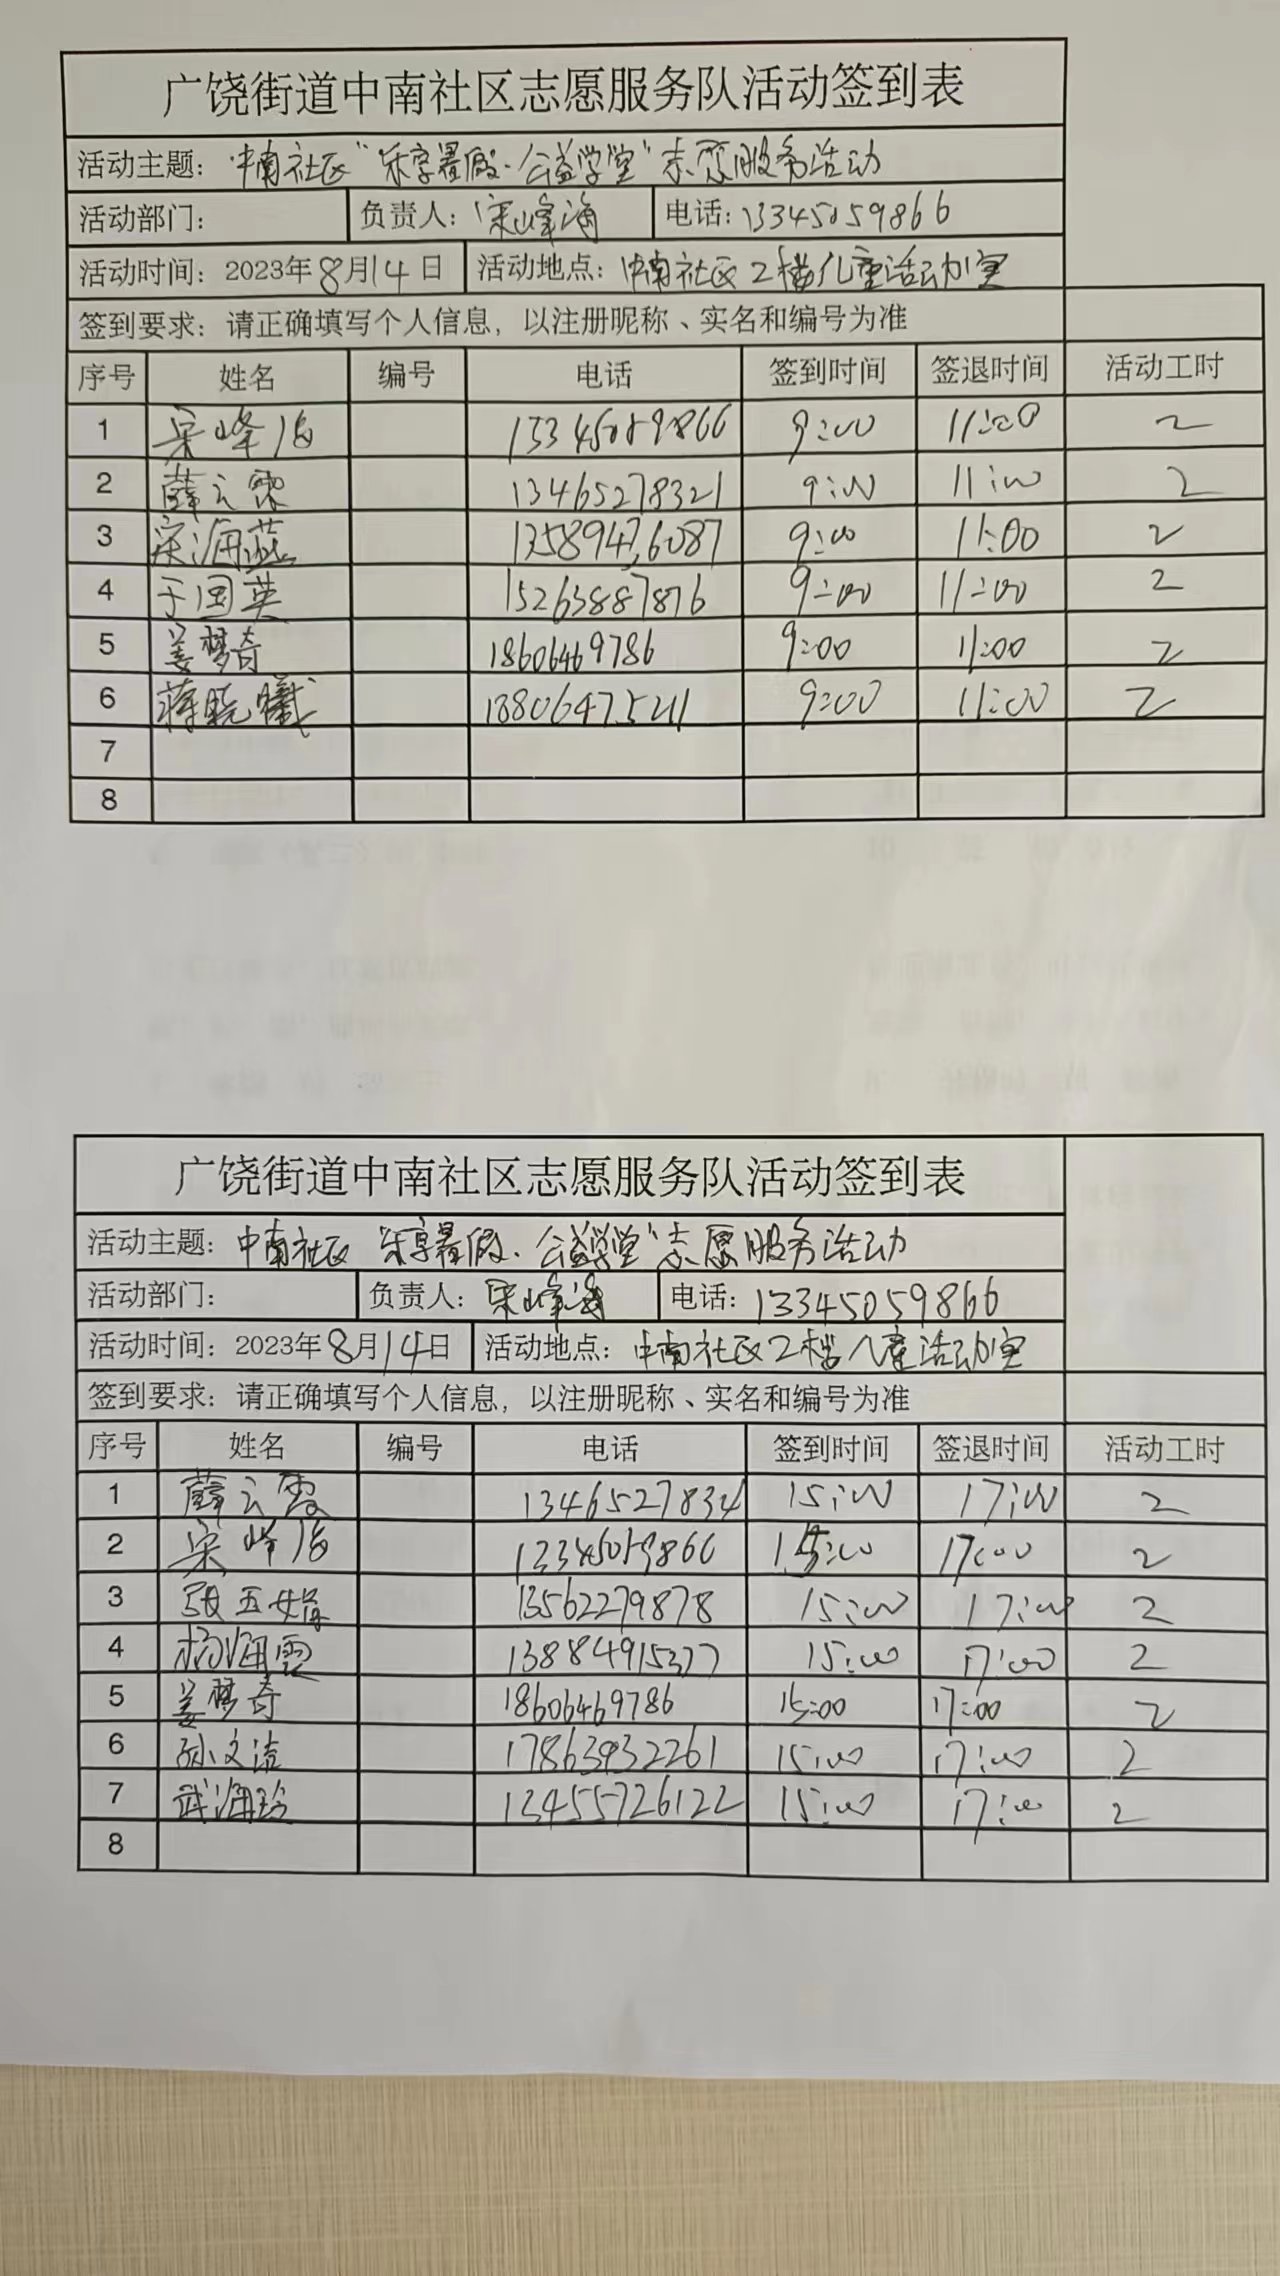 广饶街道中南社区志愿服务队活动签到表
活动主题：中南社区“乐享暑假·公益学堂”志愿服务活动
活动部门： 负责人：宋峰海 电话：13345059866
活动时间：2023年8月14日 活动地点：中南社区2楼儿童活动室
签到要求：请正确填写个人信息，以注册昵称、实名和编号为准
序号 姓名 编号 电话 签到时间 签退时间 活动工时
1 宋峰海 13345059866 9:00 11:00 2
2 薛云霞 13465278321 9:00 11:00 2
3 宋海燕 13589476087 9:00 11:00 2
4 于国英 15263887876 9:00 11:00 2
5 姜梦奇 18606469786 9:00 11:00 2
6 蒋晓曦 18806475211 9:00 11:00 2
7
8
广饶街道中南社区志愿服务队活动签到表
活动主题：中南社区“乐享暑假·公益学堂”志愿服务活动
活动部门： 负责人：宋峰海 电话：13345059866
活动时间：2023年8月14日 活动地点：中南社区2楼儿童活动室
签到要求：请正确填写个人信息，以注册昵称、实名和编号为准
序号 姓名 编号 电话 签到时间 签退时间 活动工时
1 薛云霞 15:00 17:00 2
2 宋峰海 13345059866 15:00 17:00 2
3 张五娟 13562279878 15:00 17:00 2
4 杨海霞 13884915377 15:00 17:00 2
5 姜梦奇 18606469786 15:00 17:00 2
6 孙文洁 17863932261 15:00 17:00 2
7 武海玲 13455726122 15:00 17:00 2
8